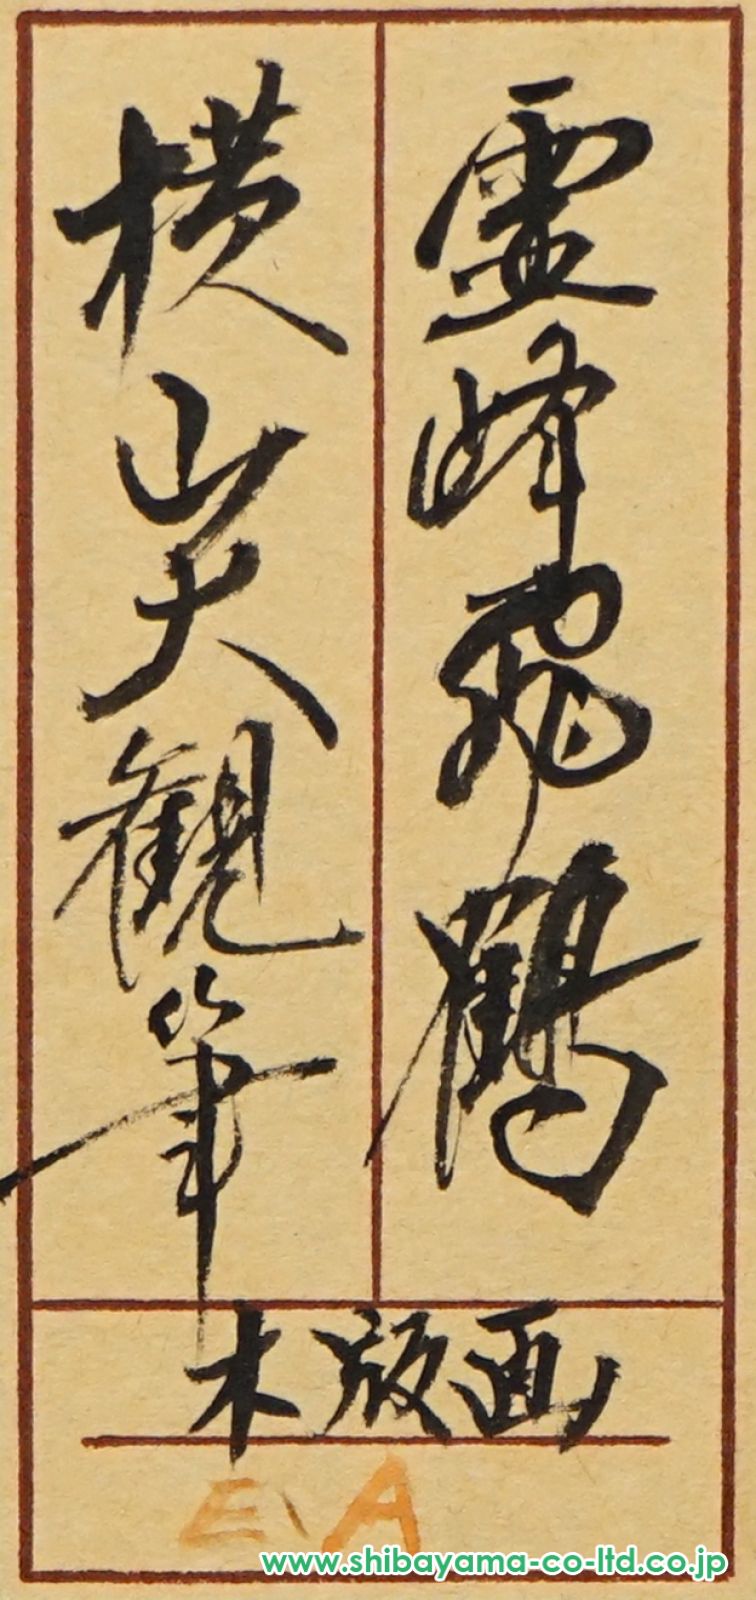 霊峰飛鶴
横山大観筆
木版画
E\A
www.shibayama-co-ltd.co.jp